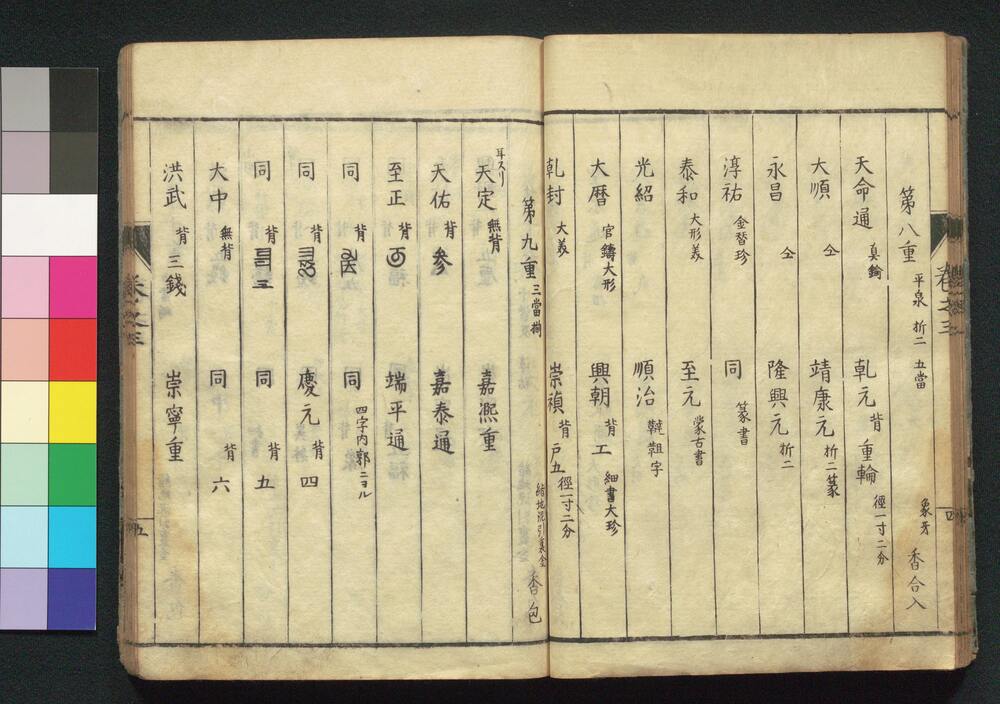 第八重 平泉 折二 五當 象牙 香合入
天命通 真鍮 乾元 背 重輪 徑一寸二分
大順 仝 靖康元 折二篆
永昌 仝 隆興元 折二
淳祐 金替珍 同 篆書
泰和 大形美 至元 蒙古書
光紹 順治 韃靼字
大暦 官鑄大形 興朝 背 工 細書大珍
乾封 大美 崇禎 背 戸五 徑一寸二分
第九重 三當揃 香包
耳スリ
天定 無背 嘉熙重
天佑 背 参 嘉泰通
至正 背 端平通
同 背 同 四字内郭ニヨル
同 背 慶元 背 四
同 背 三 同 背 五
大中 無背 同 背 六
洪武 背 三錢 崇寧重
卷之三 四
卷之三 五